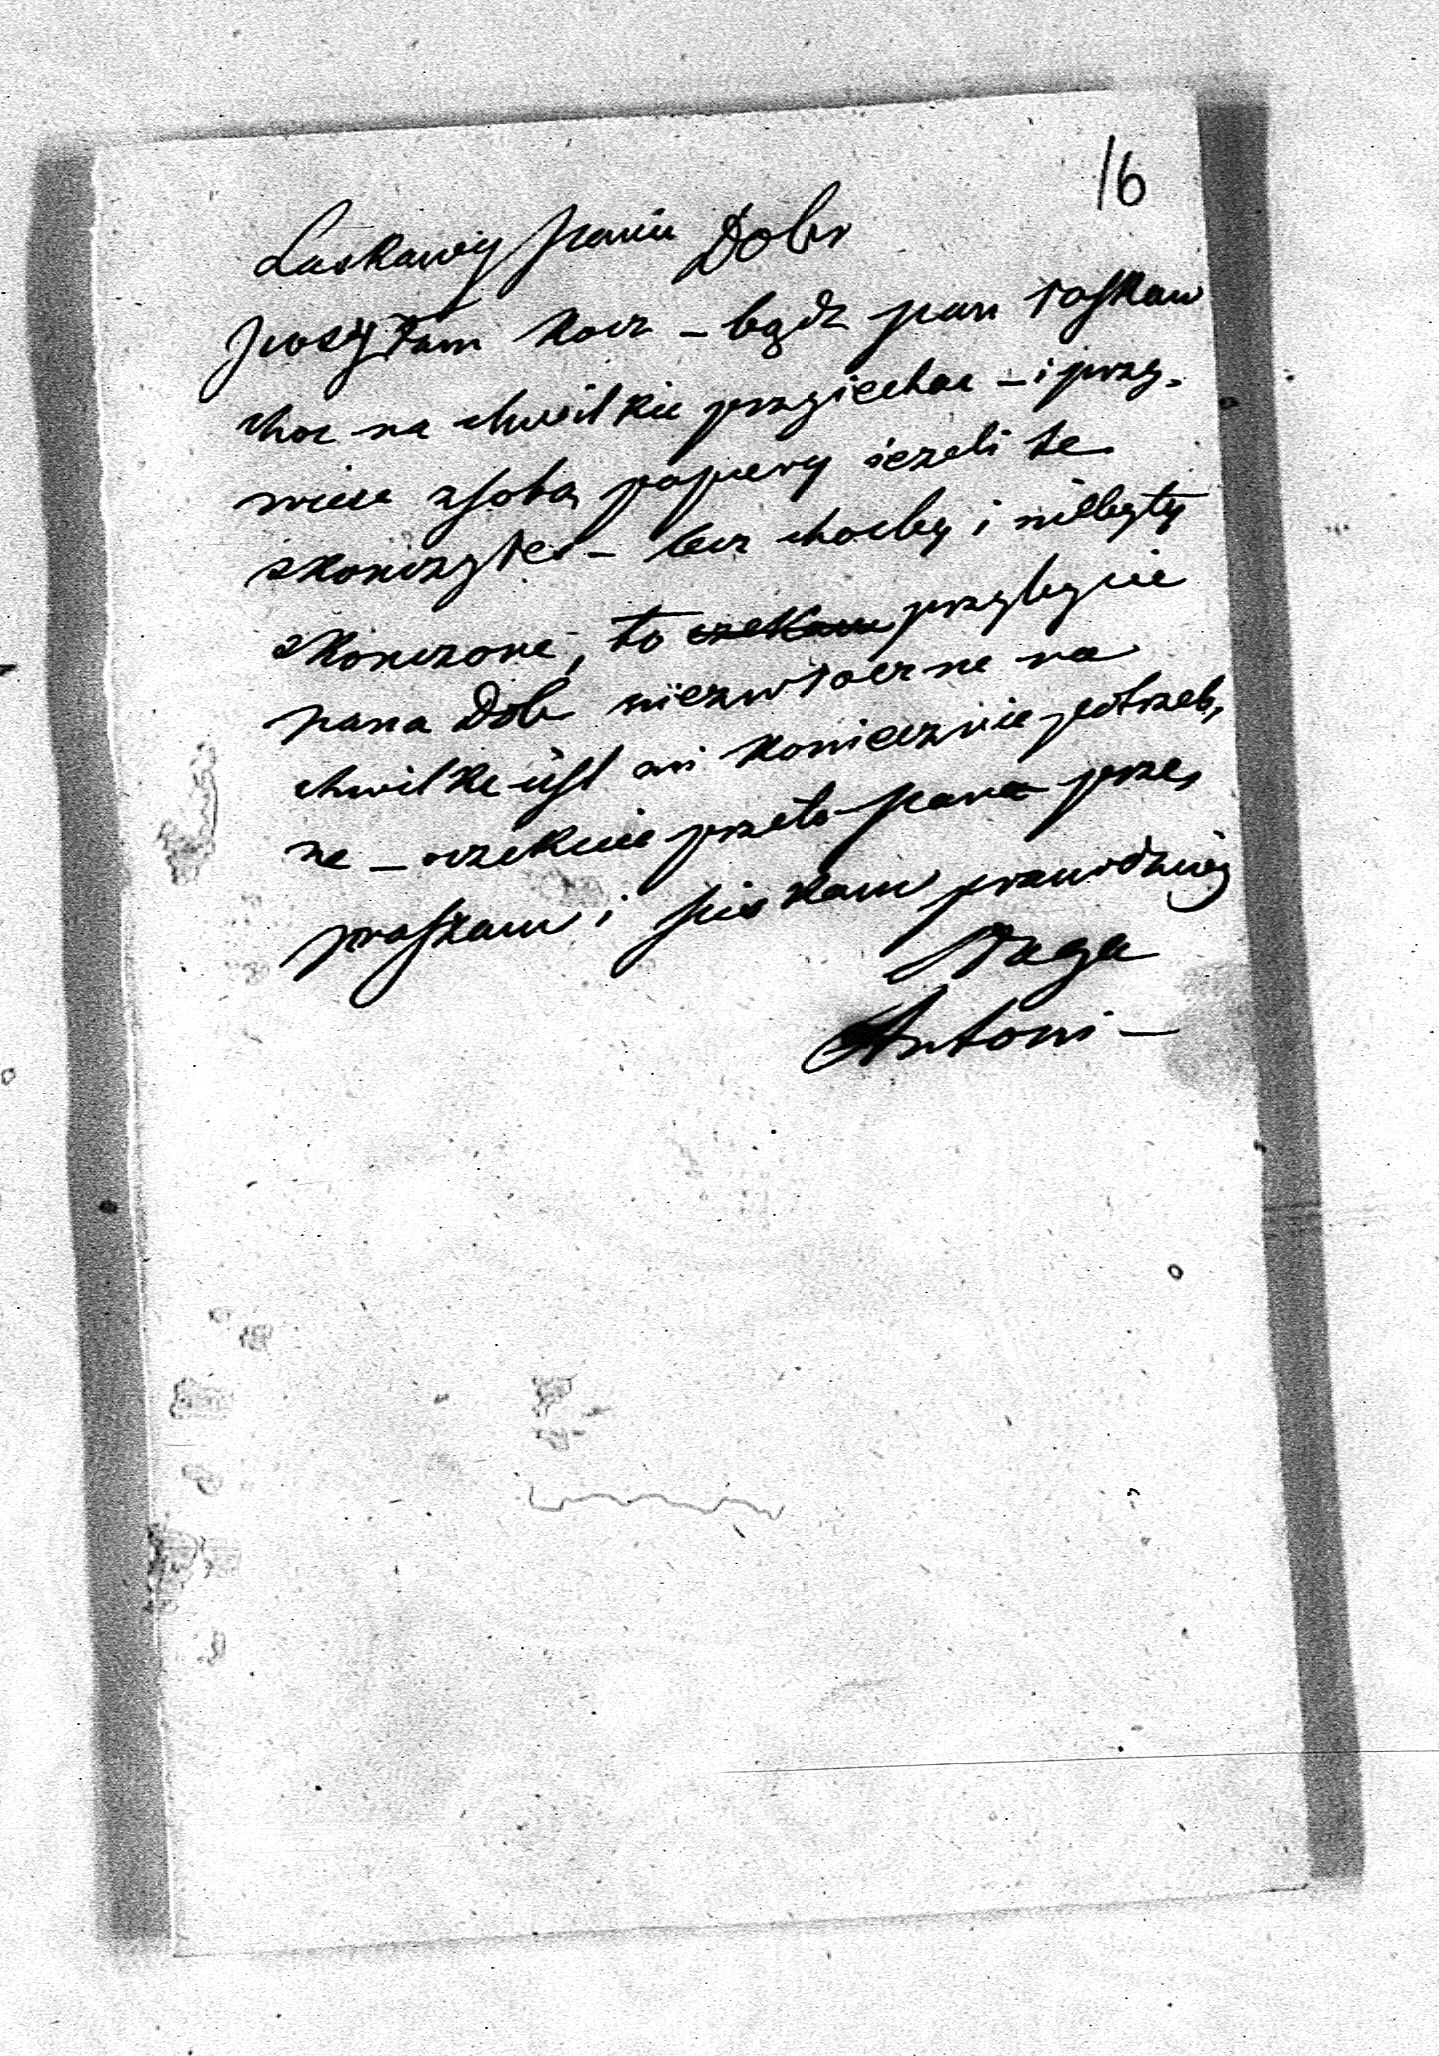 16
Łaskawy panie Dobr
posyłam kocz – bądz pan łaskaw
choc na chwilkie przyiechac – i przy,
wiesc zsobą papiery ieżeli te
skonczyłes – lecz chocby i niebyły
skonczone, to czekam przybycie
pana Dob niezwłoczne na
chwilke iest mi koniecznie potrzeb,
ne – oczekuie przeto pana prze,
praszam i sciskam prawdziwy
sługa
Antoni –